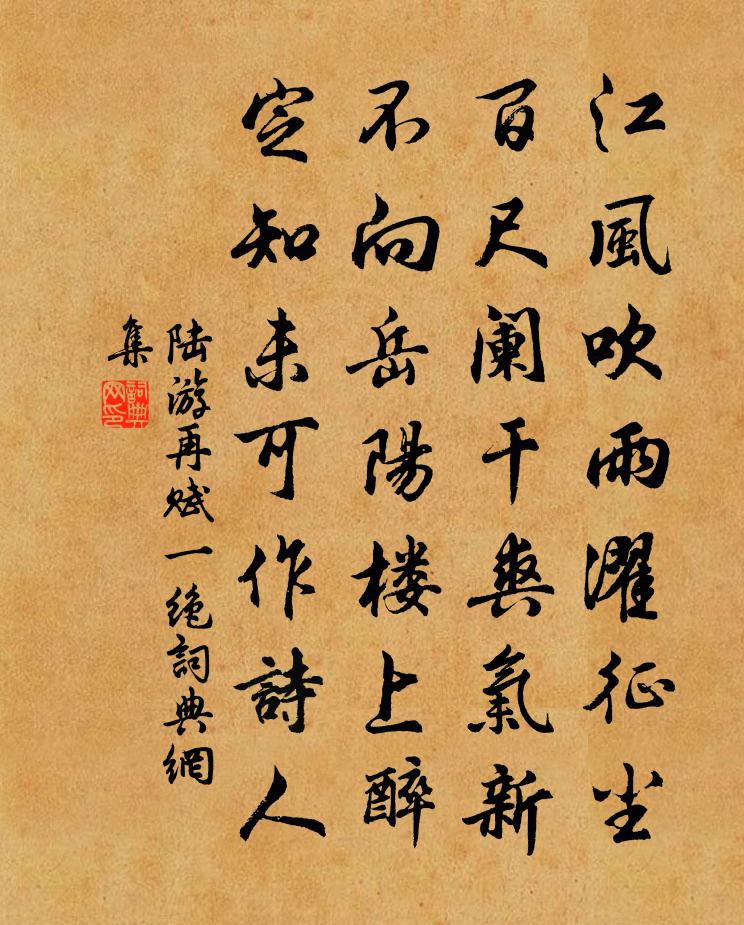 江風吹雨濯征尘
百尺阑干爽氣新
不向岳陽楼上醉
定知未可作詩人
陆游再赋一绝詞典網
集
詞典网印